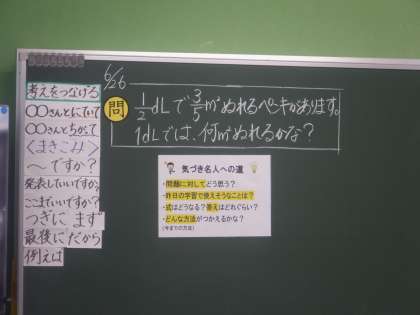 6/26
問 1/2dLで3/5m²ぬれるペンキがあります。
1dLでは、何m²ぬれるかな？
考えをつなげる
〇〇さんとにていて
〇〇さんとちがって
〈まきこみ〉
〜ですか？
発表していいですか。
ここまでいいですか？
つぎに まず
最後に だから
例えば
気づき名人への道
・問題に対してどう思う？
・昨日の学習で使えそうなことは？
・式はどうなる？答えはどれぐらい？
・どんな方法がつかえるかな？
(今までの方法)